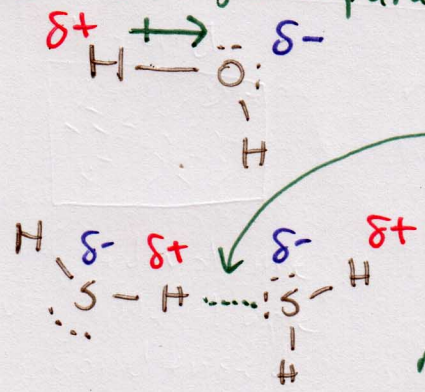 δ+ δ-
H O
H
H δ- δ+ δ- δ+
S H S H
H